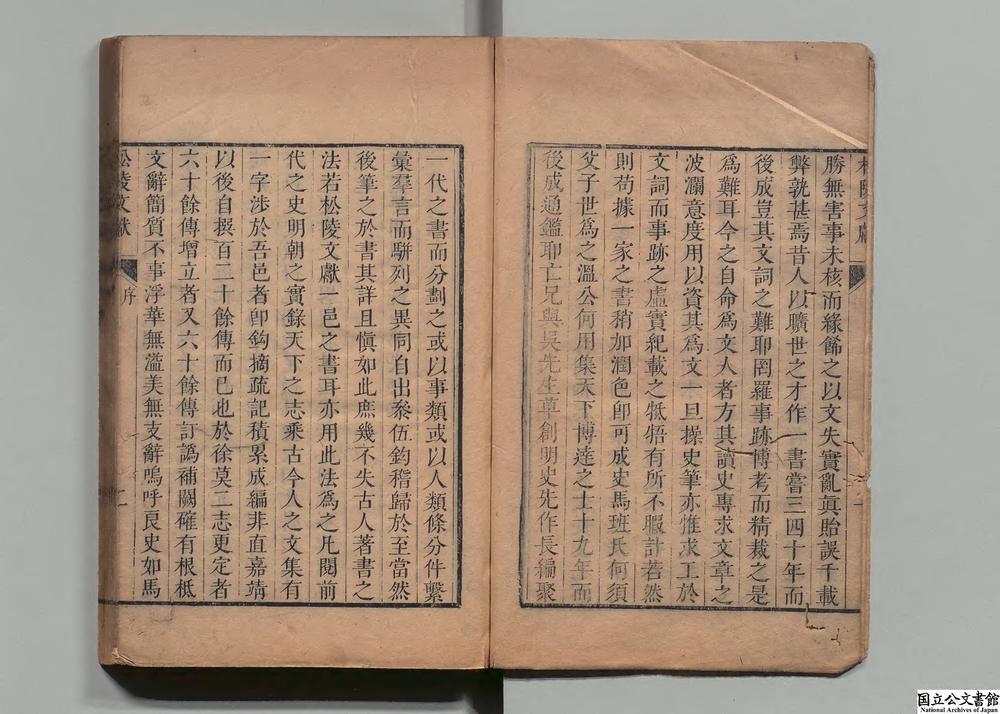 勝無害事未核而緣飾之以文失實亂眞貽誤千載
弊孰甚焉昔人以曠世之才作一書嘗三四十年而
後成豈其文詞之難耶罔羅事跡博考而精裁之是
爲難耳今之自命爲文人者方其讀史專求文章之
波瀾意度用以資其爲文一旦操史筆亦惟求工於
文詞而事跡之虛實紀載之牴牾有所不暇計若然
則苟據一家之書稍加潤色卽可成史馬班氏何須
父子世爲之溫公何用集天下博達之士十九年而
後成通鑑耶亡兄與吳先生草創明史先作長編聚
一代之書而分劃之或以事類或以人類條分件繫
彙羣言而駢列之異同自出叅伍鉤稽歸於至當然
後筆之於書其詳且愼如此庶幾不失古人著書之
法若松陵文獻一邑之書耳亦用此法爲之凡閱前
代之史明朝之實錄天下之志乘古今人之文集有
一字涉於吾邑者卽鈎摘疏記積累成編非直嘉靖
以後自撰百二十餘傳而已也於徐莫二志更定者
六十餘傳增立者又六十餘傳訂譌補闕確有根柢
文辭簡質不事浮華無溢美無支辭嗚呼良史如馬
松陵文獻
序
二
国立公文書館
National Archives of Japan